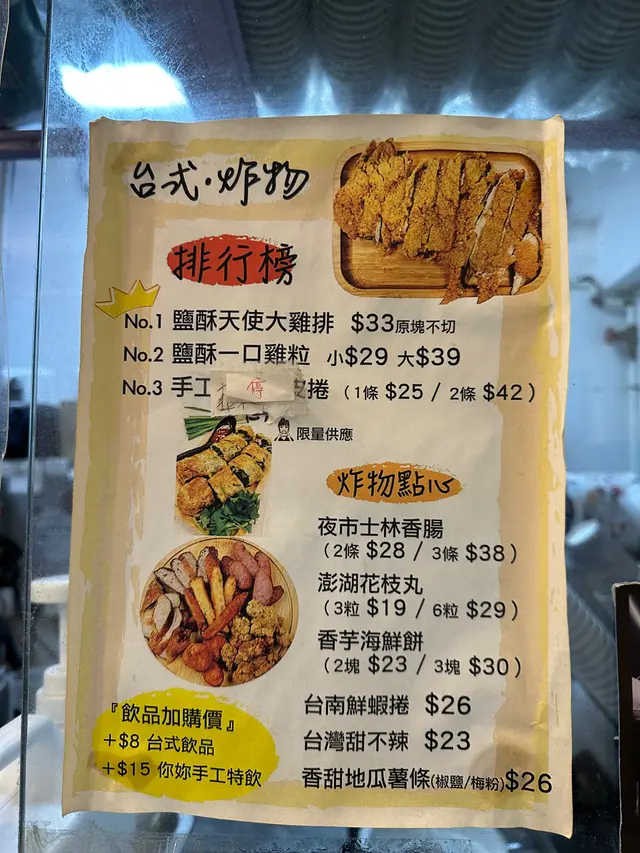 台式·炸物
排行榜
No.1 鹽酥天使大雞排 $33原塊不切
No.2 鹽酥一口雞粒 小$29 大$39
No.3 手工 停 皮捲 (1條 $25 / 2條 $42)
限量供應
炸物點心
夜市士林香腸
(2條 $28 / 3條 $38)
澎湖花枝丸
(3粒 $19 / 6粒 $29)
香芋海鮮餅
(2塊 $23 / 3塊 $30)
台南鮮蝦捲 $26
台灣甜不辣 $23
香甜地瓜薯條(椒鹽/梅粉)$26
『飲品加購價』
+$8 台式飲品
+$15 你妳手工特飲